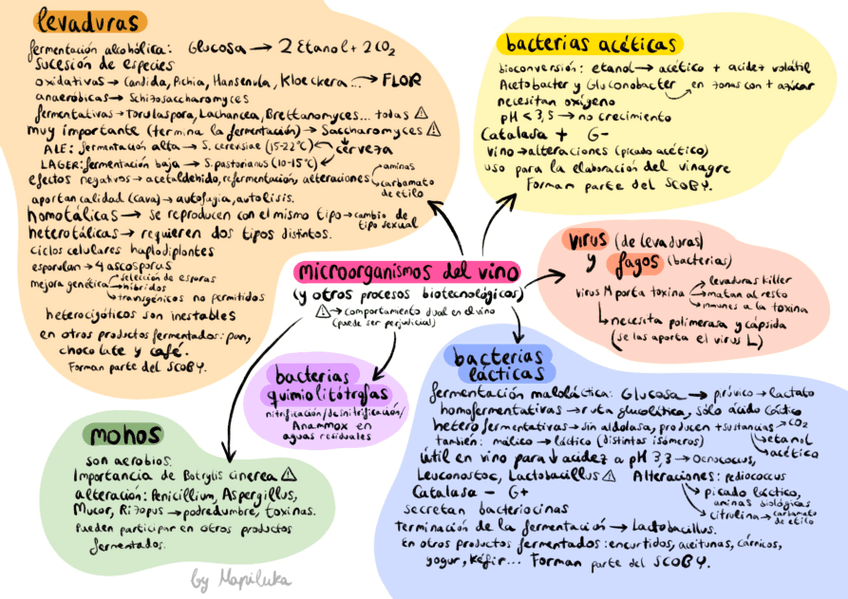 levaduras
fermentación alcohólica: Glucosa → 2 Etanol + 2 CO2
sucesión de especies
oxidativas → Candida, Pichia, Hansenula, Kloeckera... → FLOR
anaeróbicas → Schizosaccharomyces
fermentativas → Torulaspora, Lachancea, Brettanomyces... todas ⚠
muy importante (termina la fermentación) → Saccharomyces ⚠
ALE: fermentación alta → S. cerevisiae (15-22°C)
cerveza
LAGER: fermentación baja → S. pastorianus (10-15°C)
efectos negativos → acetaldehido, refermentación, alteraciones
aminas
carbamato de etilo
aportan calidad (cava) → autofagia, autolisis.
homotálicas → se reproducen con el mismo tipo → cambio de tipo sexual
heterotálicas → requieren dos tipos distintos.
ciclos celulares haplodiplontes
esporulan → 4 ascosporas
mejora genética
selección de esporas
híbridos
transgénicos no permitidos
heterocigóticos son inestables
en otros productos fermentados: pan,
chocolate y café.
Forman parte del SCOBY.
bacterias acéticas
bioconversión: etanol → acético + acidez volátil
Acetobacter y Gluconobacter → en zonas con + azúcar
necesitan oxígeno
pH < 3,5 → no crecimiento
Catalasa + G-
vino → alteraciones (picado acético)
uso para la elaboración del vinagre
Forman parte del SCOBY.
microorganismos del vino
(y otros procesos biotecnológicos)
⚠ → comportamiento dual en el vino
(puede ser perjudicial)
virus (de levaduras)
y fagos (bacterias)
virus M porta toxina
levaduras killer
matan al resto
inmunes a la toxina
necesita polimerasa y cápsida
(se las aporta el virus L)
bacterias
quimiolitótrofas
nitrificación/desnitrificación/
Anammox en
aguas residuales
bacterias
lácticas
fermentación maloláctica: Glucosa → pirúvico → lactato
homofermentativas → ruta glucolítica, sólo ácido láctico
heterofermentativas → sin aldolasa, producen + sustancias
CO2
etanol
acético
también: málico → láctico (distintos isómeros)
útil en vino para ↓ acidez a pH 3,3 → Oenococcus,
Leuconostoc, Lactobacillus ⚠ Alteraciones: pediococcus
picado láctico,
aminas biológicas
citrulina → carbamato de etilo
Catalasa - G+
secretan bacteriocinas
Terminación de la fermentación → Lactobacillus.
En otros productos fermentados: encurtidos, aceitunas, cárnicos,
yogur, kéfir... Forman parte del SCOBY.
mohos
son aerobios.
Importancia de Botrytis cinerea ⚠
alteración: Penicillium, Aspergillus,
Mucor, Rizopus → podredumbre, toxinas.
Pueden participar en otros productos
fermentados.
by Mapiluka